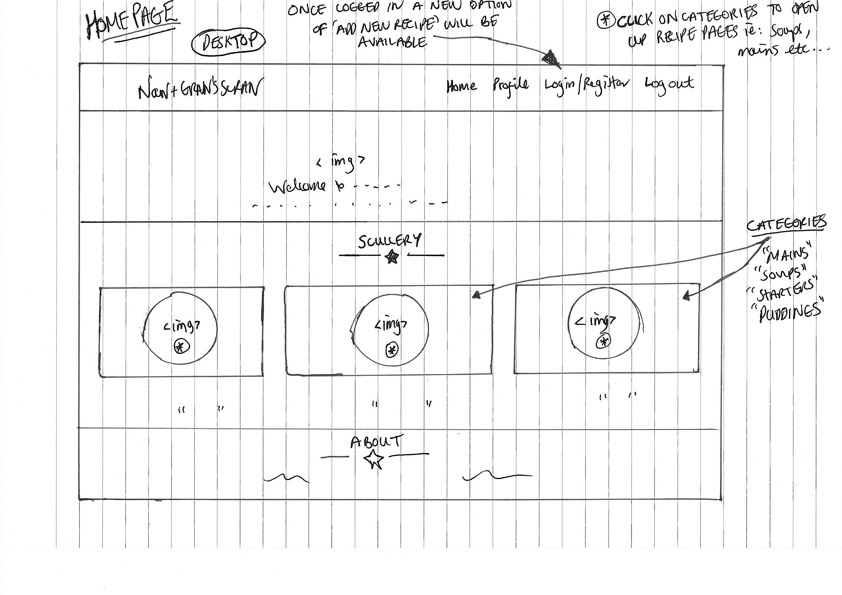 HOMEPAGE
DESKTOP
ONCE LOGGED IN A NEW OPTION
OF 'ADD NEW RECIPE' WILL BE
AVAILABLE
* CLICK ON CATEGORIES TO OPEN
UP RECIPE PAGES ie: Soups,
mains etc...
Nan + GRAN'S SCRAN
Home Profile Login/Register Logout
<img>
Welcome to -----
SCULLERY
CATEGORIES
"MAINS"
"SOUPS"
"STARTERS"
"PUDDINGS"
<img> <img> <img>
* * *
" " " " " "
ABOUT